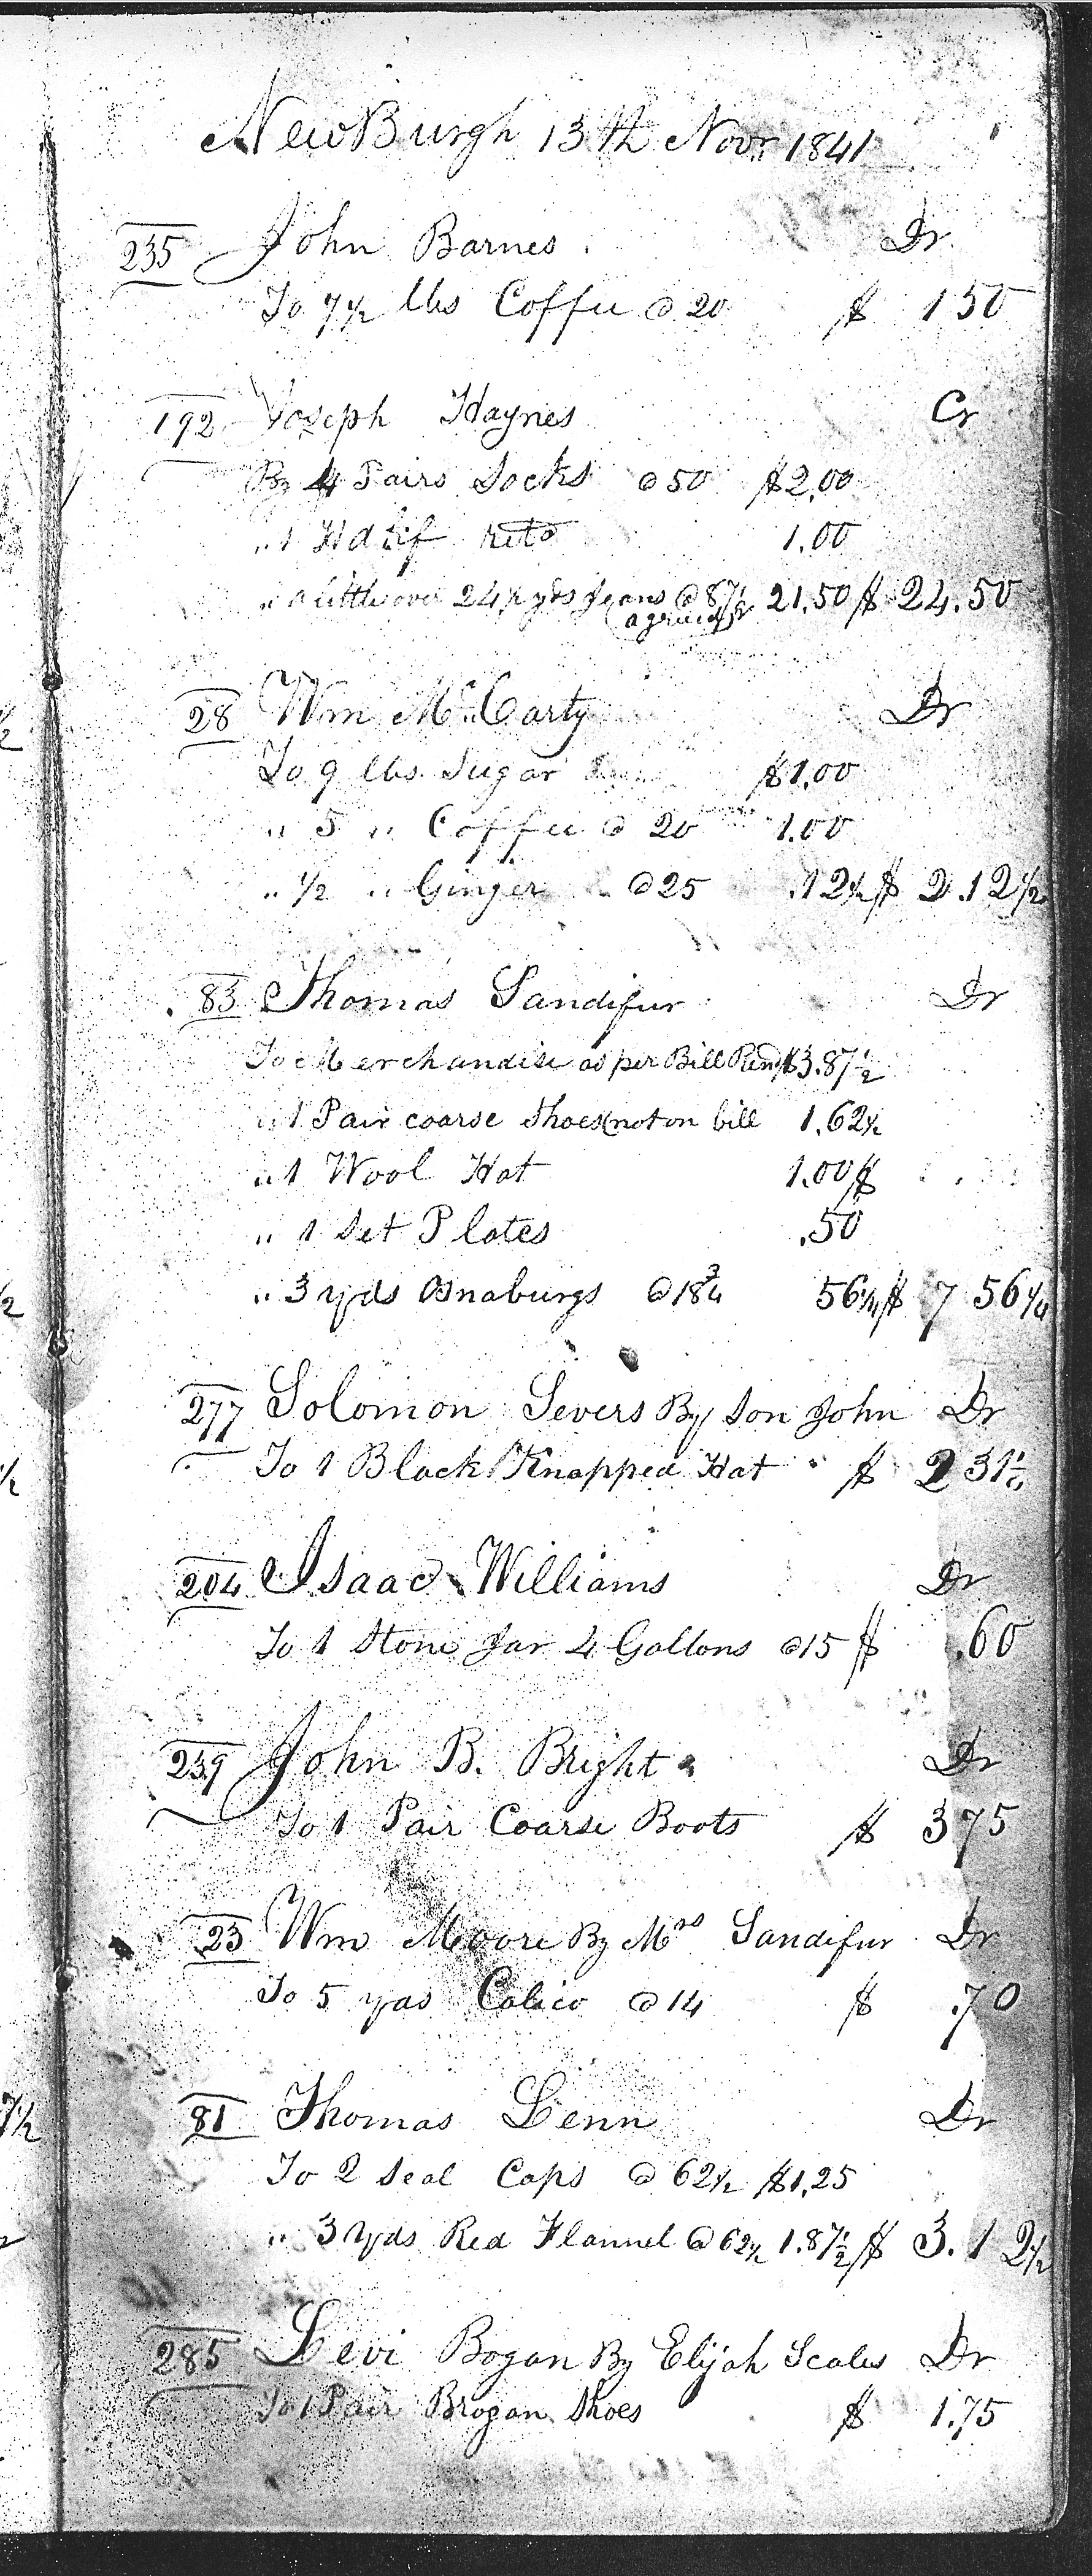 NewBurgh 13th Novr 1841
235 John Barnes. Dr
To 7½ lbs Coffee @ 20 $ 1 50
192 Joseph Haynes Cr
By 4 Pairs Socks @ 50 $2,00
" 1 1.00
" a little over 24½ yds Jeans @ 87½ 21.50 $ 24.50
agreed
28 Wm McCarty Dr
To 9 lbs Sugar $1.00
" 5 " Coffee @ 20 1.00
" ½ " Ginger @ 25 .12½ $ 2.12½
83 Thomas Sandifur Dr
To Merchandise as per Bill Rend $3.87½
" 1 Pair coarse Shoes (not on bill 1.62½
" 1 Wool Hat 1.00 $
" 1 Set Plates .50
" 3 yds Osnaburgs @ 18¾ 56¼ $ 7 56¼
277 Solomon Severs By Son John Dr
To 1 Black Knapped Hat $ 2 31½
204 Isaac Williams Dr
To 1 Stone Jar 4 Gallons @ 15 $ .60
239 John B. Bright Dr
To 1 Pair Coarse Boots $ 3 75
23 Wm Moore By Mrs Sandifur Dr
To 5 yds Calico @ 14 $ .70
81 Thomas Lenn Dr
To 2 Seal Caps @ 62½ $1,25
" 3 yds Red Flannel @ 62½ 1.87½ $ 3.12½
285 Levi Bogan By Elijah Scales Dr
To 1 Pair Brogan Shoes $ 1.75